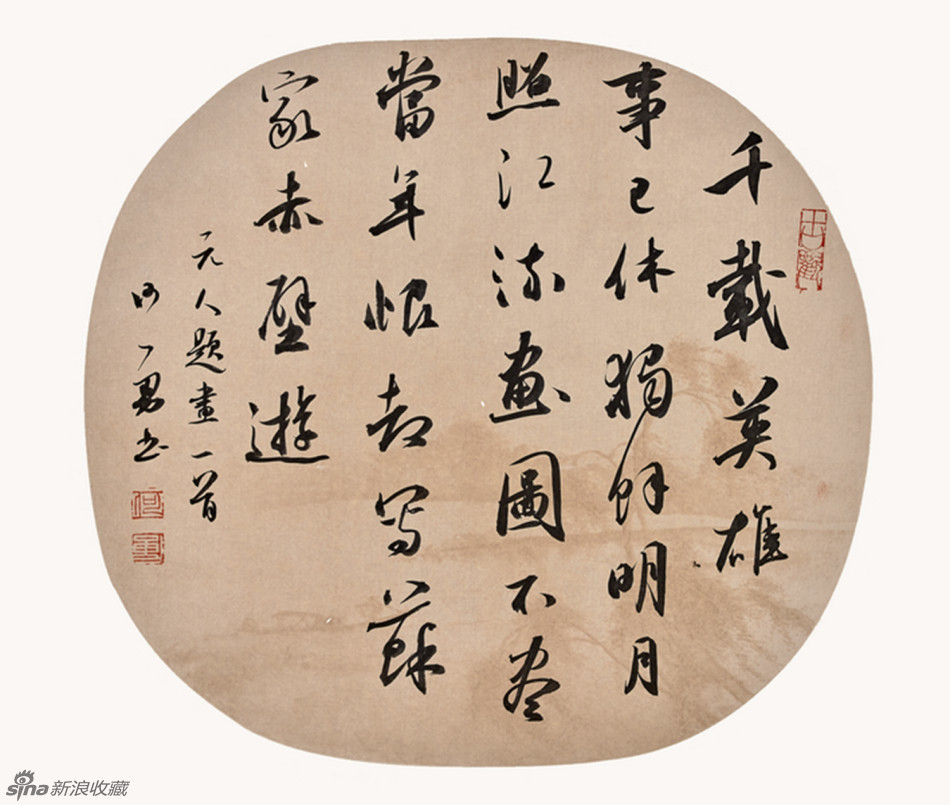 千載英雄
事已休獨餘明月
照江流畫圖不盡
當年恨却寫蘇
家赤壁遊
元人題畫一首
何一書
sina新浪收藏